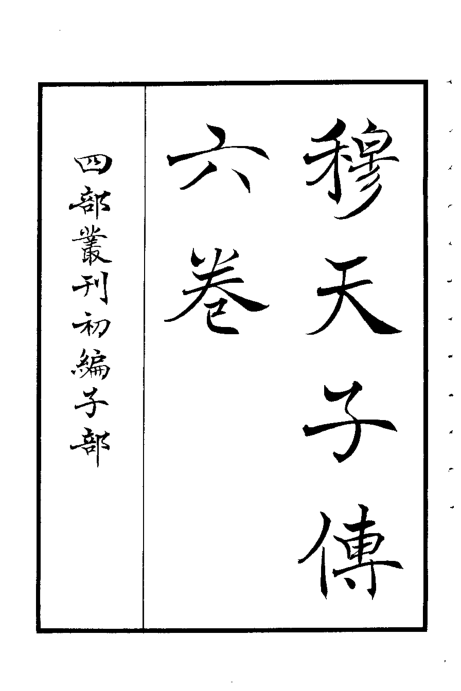 穆天子傳
六卷
四部叢刊初編子部